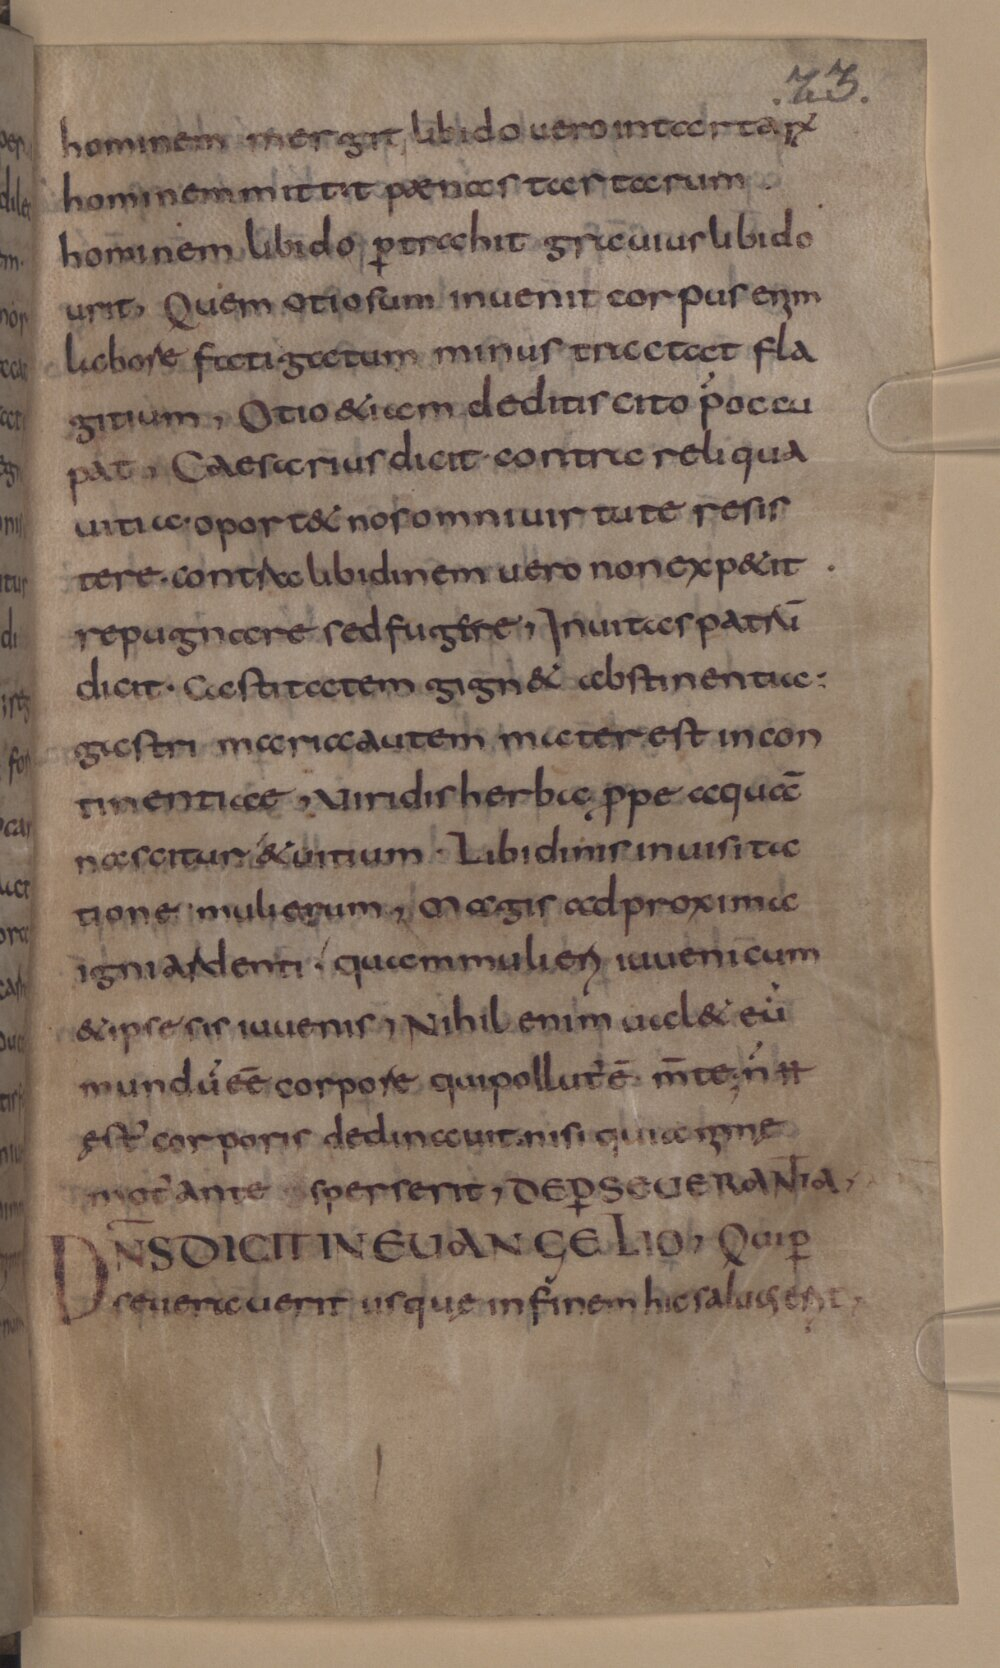 .23.
hominem mergit, libido vero in tartaꝝ
hominem mittit poenas tartarum.
hominem libido ꝑtrahit gravius libido
urit, Quem otiosum invenit corpus enim
labore fatigatum minus tractat fla
gitium, Otio &iam deditis cito p̓occu
pat, Caesarius dicit· contra reliqua
uitia· oport& nos omni uirtute resis
tere· contra libidinem uero non exp&it
repugnare sed fugire, In uitas patrū
dicit· Castitatem gign& abstinentia:
gastri maria autem mater est incon
tinentiae, Viridis herba ꝓpe aquā
nascitur & uitium· Libidinis in uisita
tione mulierum, Magis ad proxima
igni ardenti· quam mulieri iuueni cum
& ipse sis iuuenis, Nihil enim ual& eū
mundū eē corpore qui pollut' ē m̄te·
est' corporis dedinauit· nisi quia
mot' ante sperserit, DE ꝑSEUERANTIA,
DN̄S DICIT IN EUANGELIO, Qui ꝑ
seuerauerit usque in finem hic saluus erit,